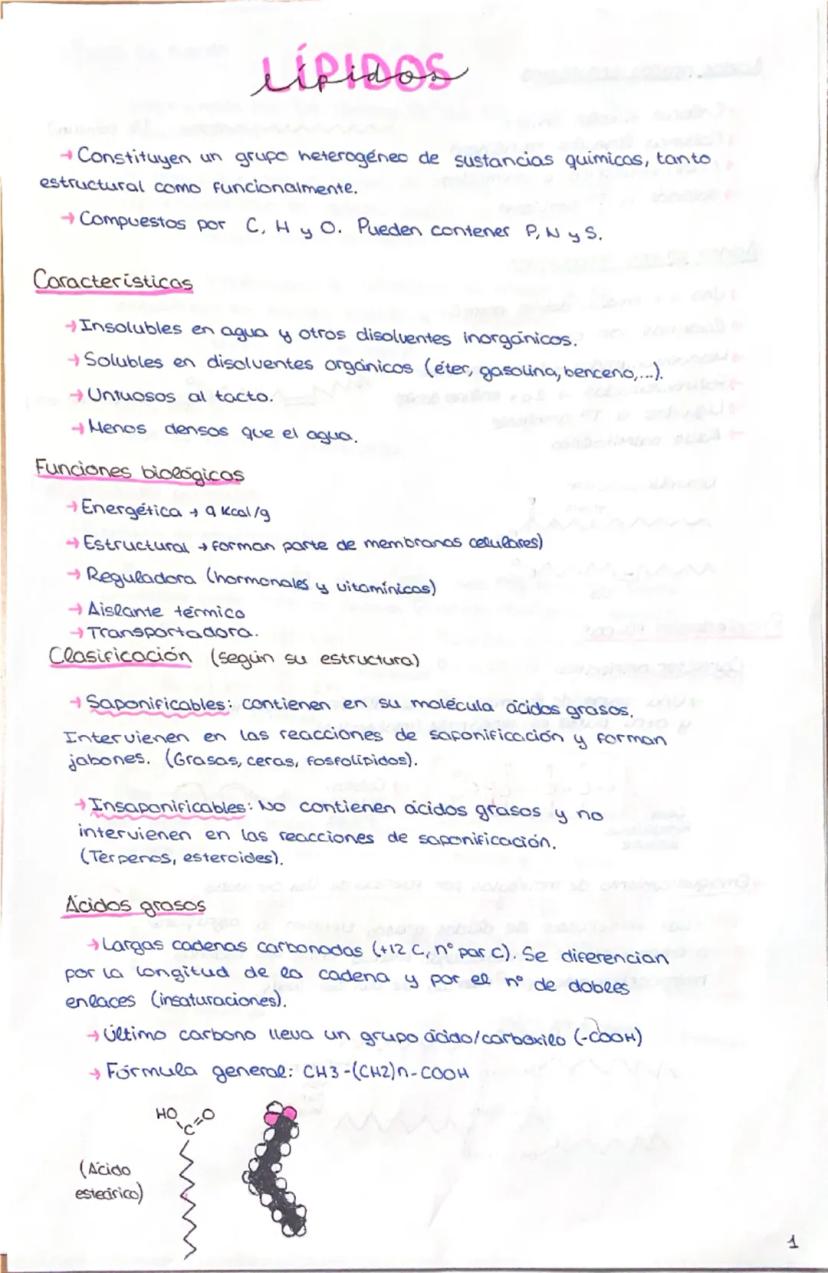 LÍPIDOS
lípidos
→ Constituyen un grupo heterogéneo de sustancias químicas, tanto
estructural como funcionalmente.
→ Compuestos por C, H y O. Pueden contener P, N y S.
Características
→ Insolubles en agua y otros disolventes inorgánicos.
→ Solubles en disolventes orgánicos (éter, gasolina, benceno,...).
→ Untuosos al tacto.
→ Menos densos que el agua.
Funciones biológicas
→ Energética → 9 Kcal/g
→ Estructural → forman parte de membranas celulares)
→ Reguladora (hormonales y vitamínicas)
→ Aislante térmico
→ Transportadora.
Clasificación (según su estructura)
→ Saponificables: contienen en su molécula ácidos grasos.
Intervienen en las reacciones de saponificación y forman
jabones. (Grasas, ceras, fosfolípidos).
→ Insaponificables: No contienen ácidos grasos y no
intervienen en las reacciones de saponificación.
(Terpenos, esteroides).
Ácidos grasos
→ Largas cadenas carbonadas (+12 C, nº par C). Se diferencian
por la longitud de la cadena y por el nº de dobles
enlaces (insaturaciones).
→ Último carbono lleva un grupo ácido/carboxilo (-COOH)
→ Fórmula general: CH3-(CH2)n-COOH
HO C=O
(Ácido
esteárico)
1